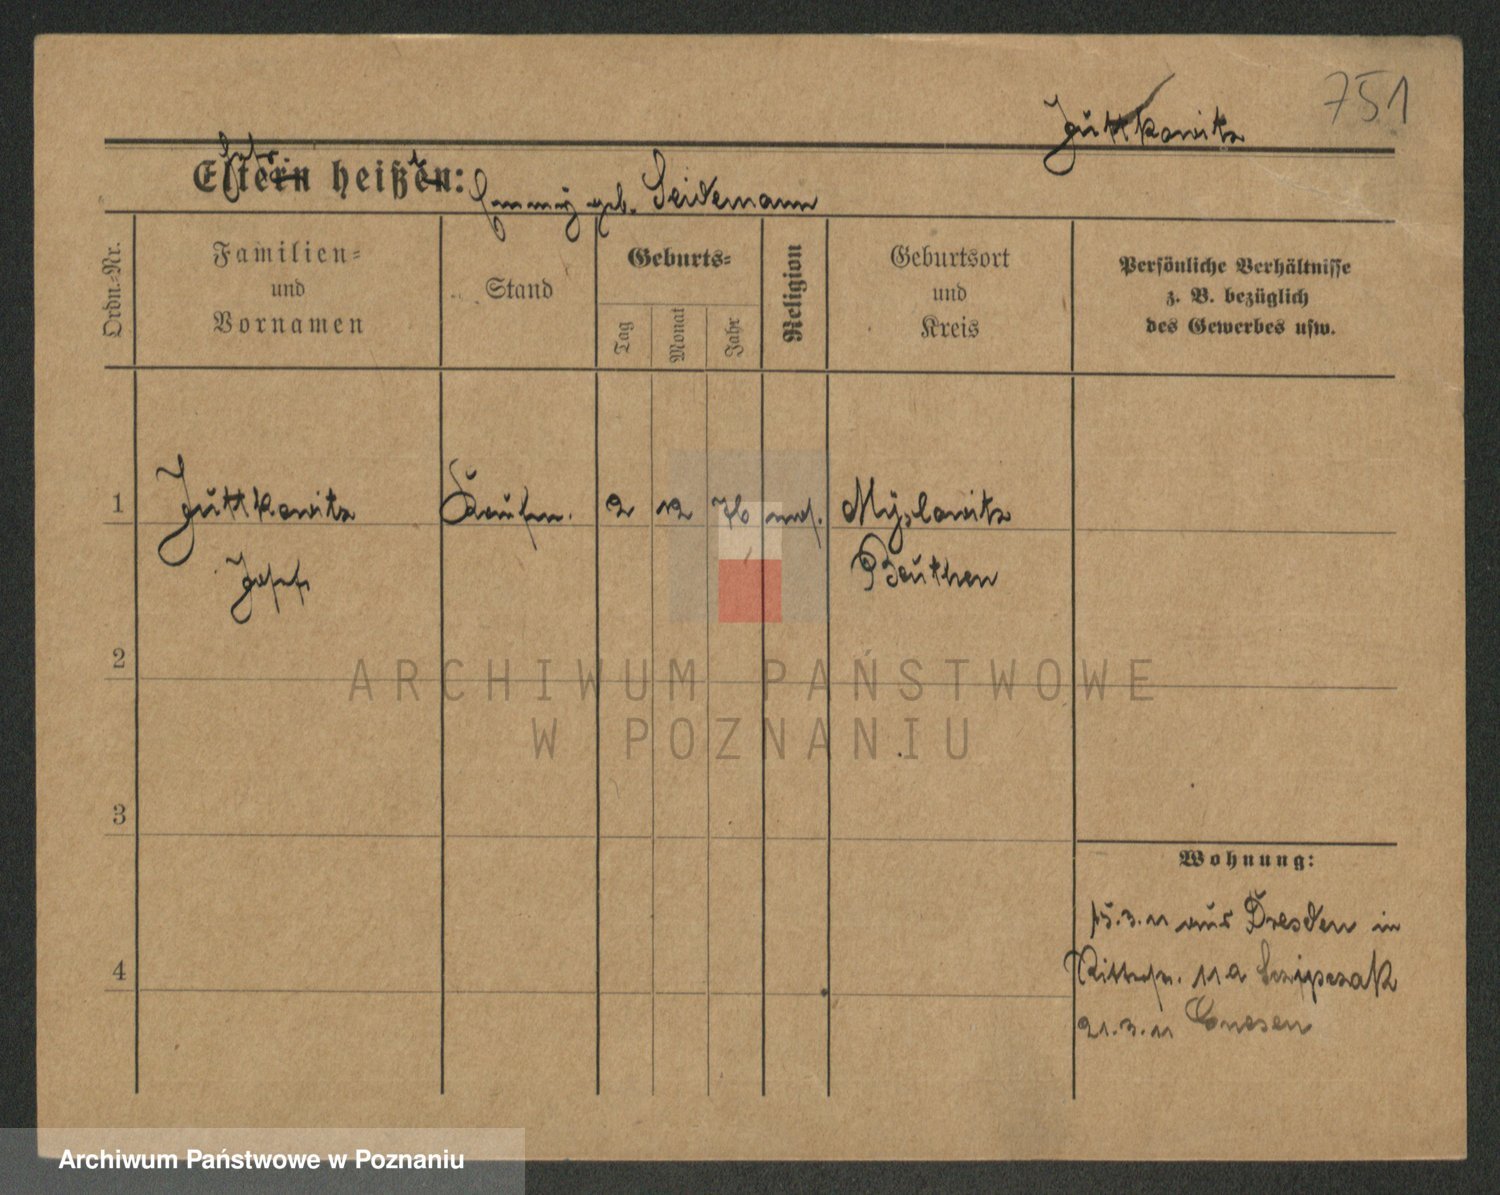 751
Juttkowitz
Eltern heißen:
geb. Seidemann
Ordn.-Nr.
Familien=
und
Vornamen
Stand
Geburts=
Tag
Monat
Jahr
Religion
Geburtsort
und
Kreis
Persönliche Verhältnisse
z. B. bezüglich
des Gewerbes usw.
1 Juttkowitz Kaufm. 2 12 76 mos. Myslowitz
Josef Beuthen
2
3
4
ARCHIWUM PAŃSTWOWE
W POZNANIU
Wohnung:
15.3.11 aus Dresden in
Ritterstr. 11a
21.3.11 Gnesen
Archiwum Państwowe w Poznaniu